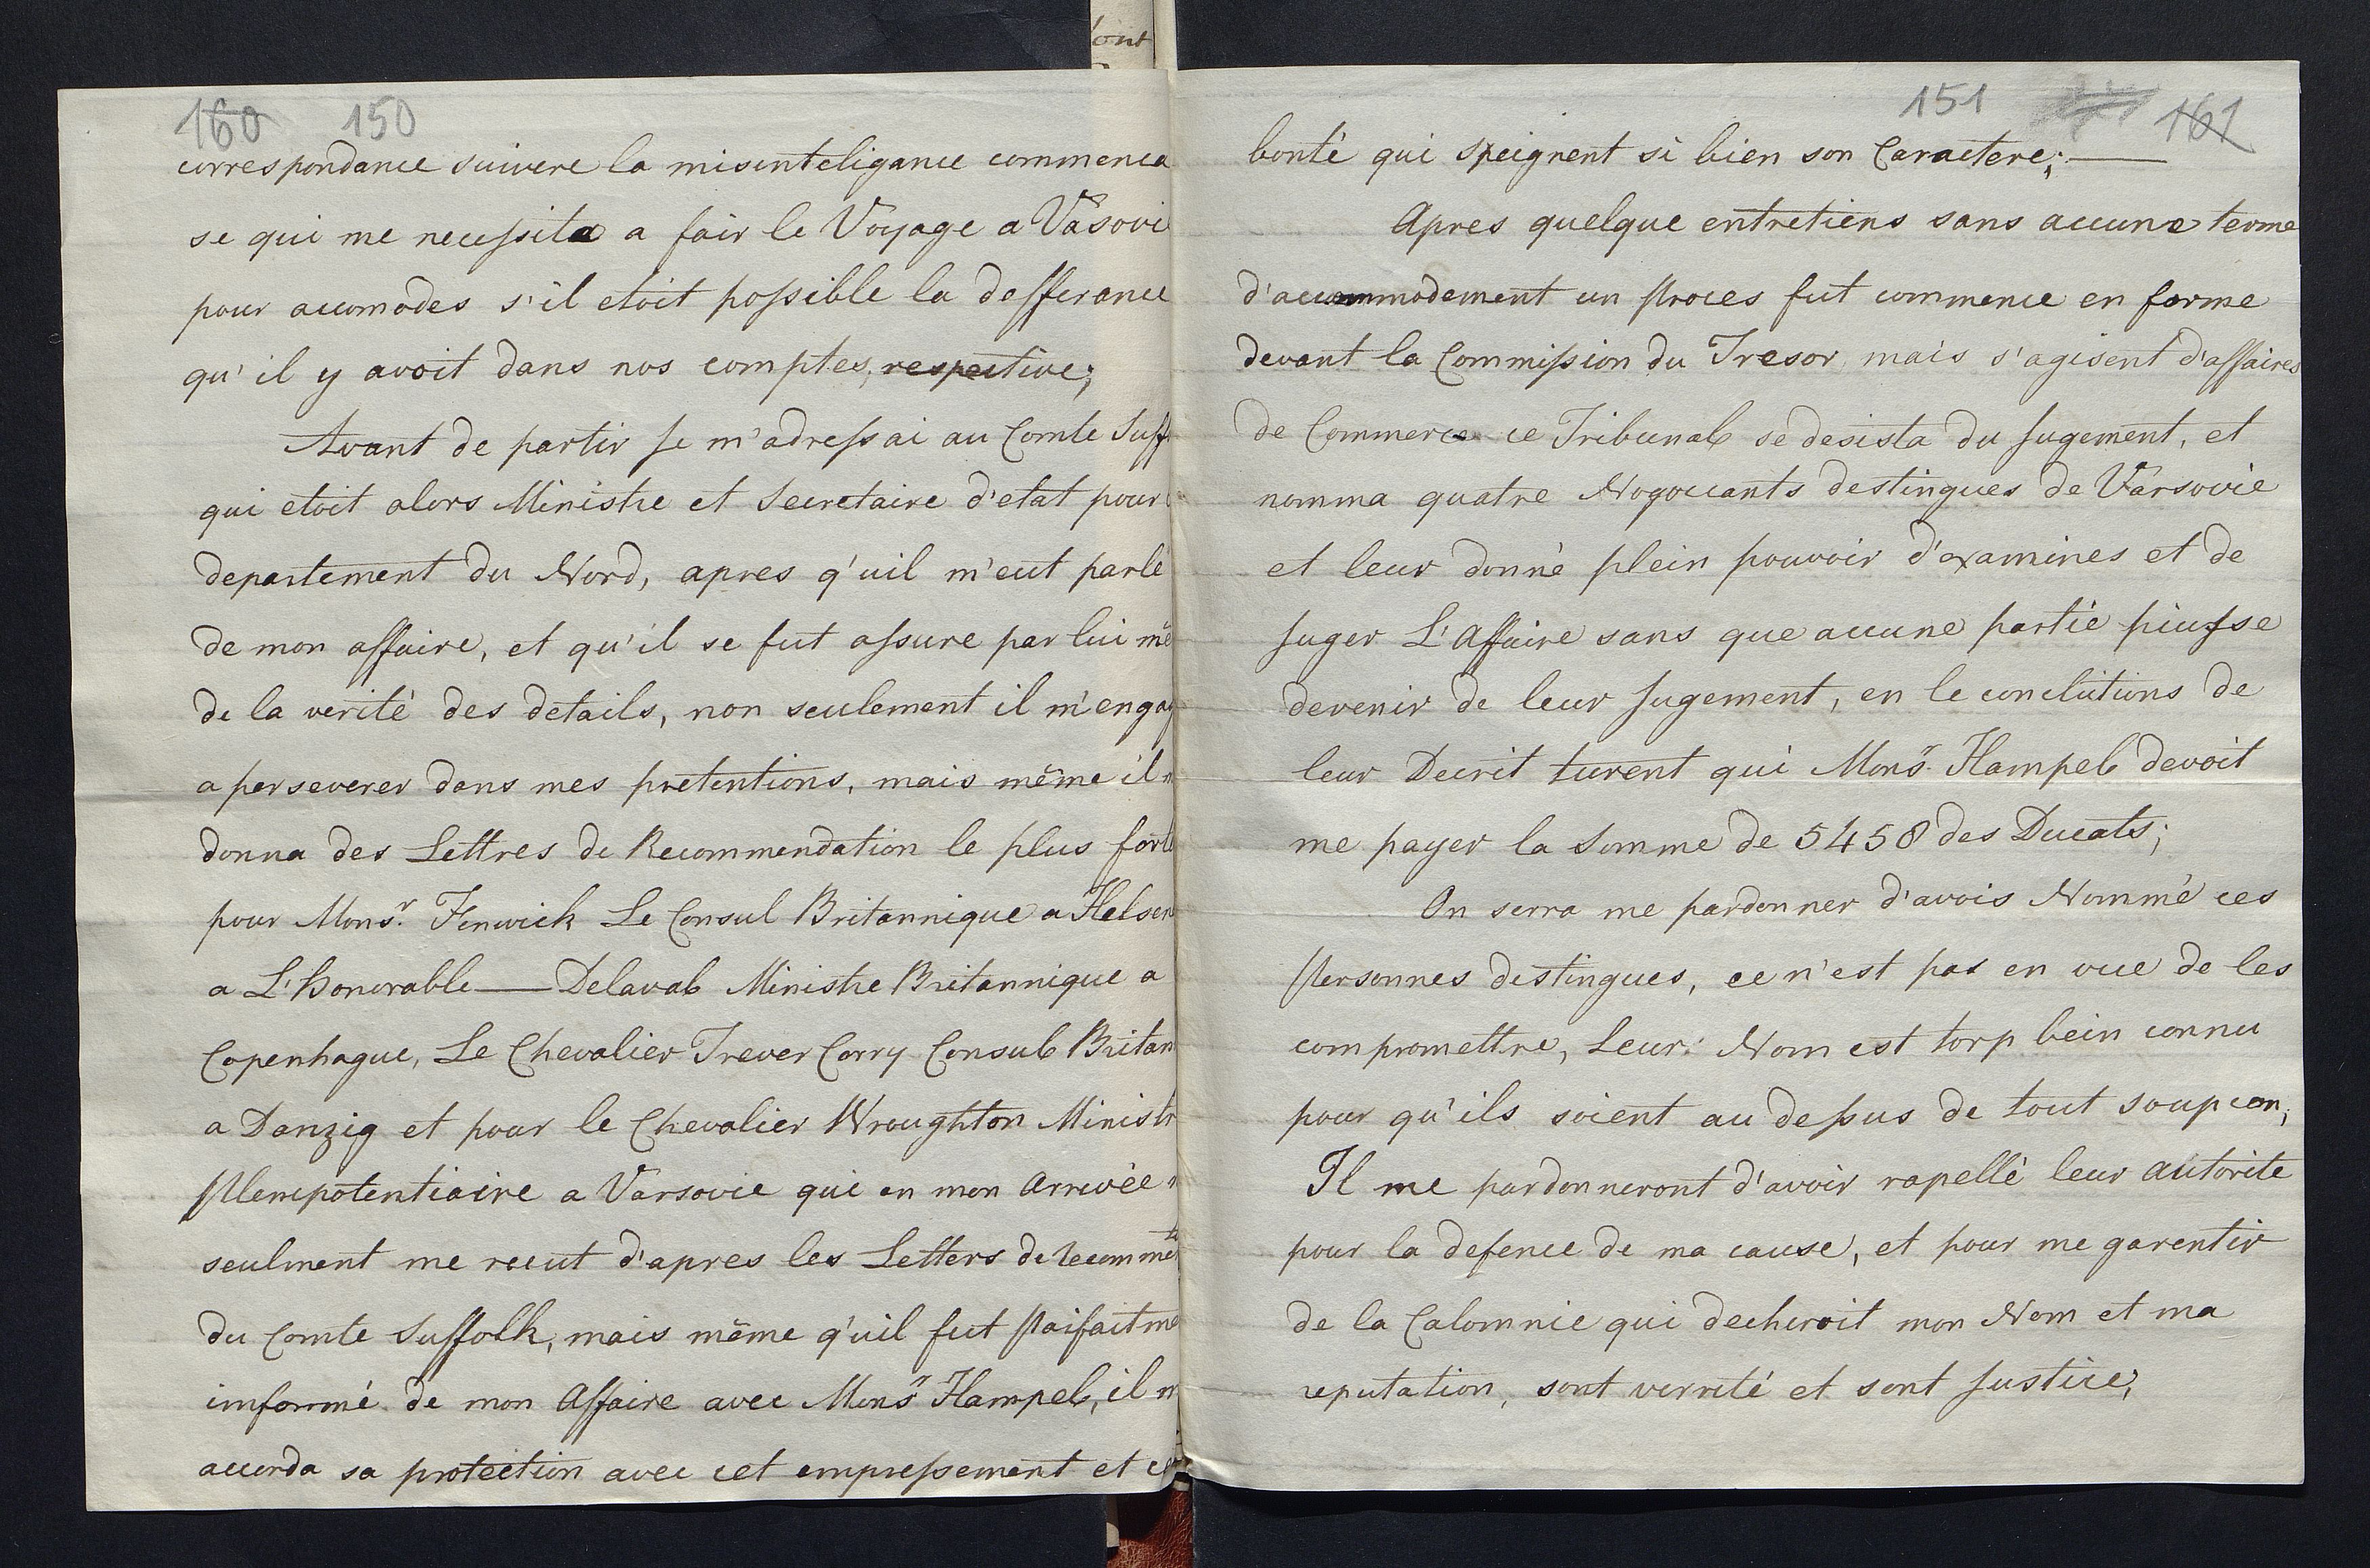 ont
160 150
correspondance suivere la misinteligance commenca
se qui me necessita a fair le Voyage a Vasovi
pour accomodes s'il etoit possible la defferance
qu'il y avoit dans nos comptes, respective;
Avant de partir Je m'adressai au Comte Suff
qui etoit alors Ministre et Secretaire d'etat pour
departement du Nord, apres q'uil m'eut parlé
de mon affaire, et qu'il se fut assure par lui mê
de la verité des details, non seulement il m'engag
a perseverer dans mes pretentions, mais même il
donna des Lettres de Recommendation le plus forte
pour Monsr. Fenwick Le Consul Britannique a Helsen
a L'honorable — Delaval Ministre Britannique a
Copenhague, Le Chevalier Trever Corry Consul Britan
a Danzig et pour le Chevalier Wroughton Ministr
Plenipotentiaire a Varsovie qui en mon Arrivée
seulment me recut d'apres les Letters de recomme
du Comte Suffolk, mais même q'uil fut Paifaitme
imformé de mon Affaire avec Monsr Hampel, il m
accorda sa protection avec cet empressement et ce
151 161
bonté qui speignent si bien son Caractere; —
Apres quelque entretiens sans aucune terme
d'accommodement un Proces fut commence en forme
devant la Commission du Tresor, mais s'agisent d'affaires
de Commerce ce Tribunal se desista du Jugement, et
nomma quatre Nogocants destingues de Varsovie
et leur donné plein pouvoir d'examines et de
Juger L'Affaire sans que aucune partie piusse
devenir de leur Jugement, en le conclutions de
leur Decrit turent qui Monsr. Hampel devoit
me payer la Somme de 5458 des Ducats;
On serra me pardonner d'avois Nommé ces
Personnes destingues, ce n'est pas en vue de les
compromettre, Leur Nom est torp bein connu
pour qu'ils soient au dessus de tout soupcon,
Il me pardonneront d'avoir rapellé leur autorite
pour la defence de ma cause, et pour me garentir
de la Calomnie qui decheroit mon Nom et ma
reputation, sont verrité et sont Justice;